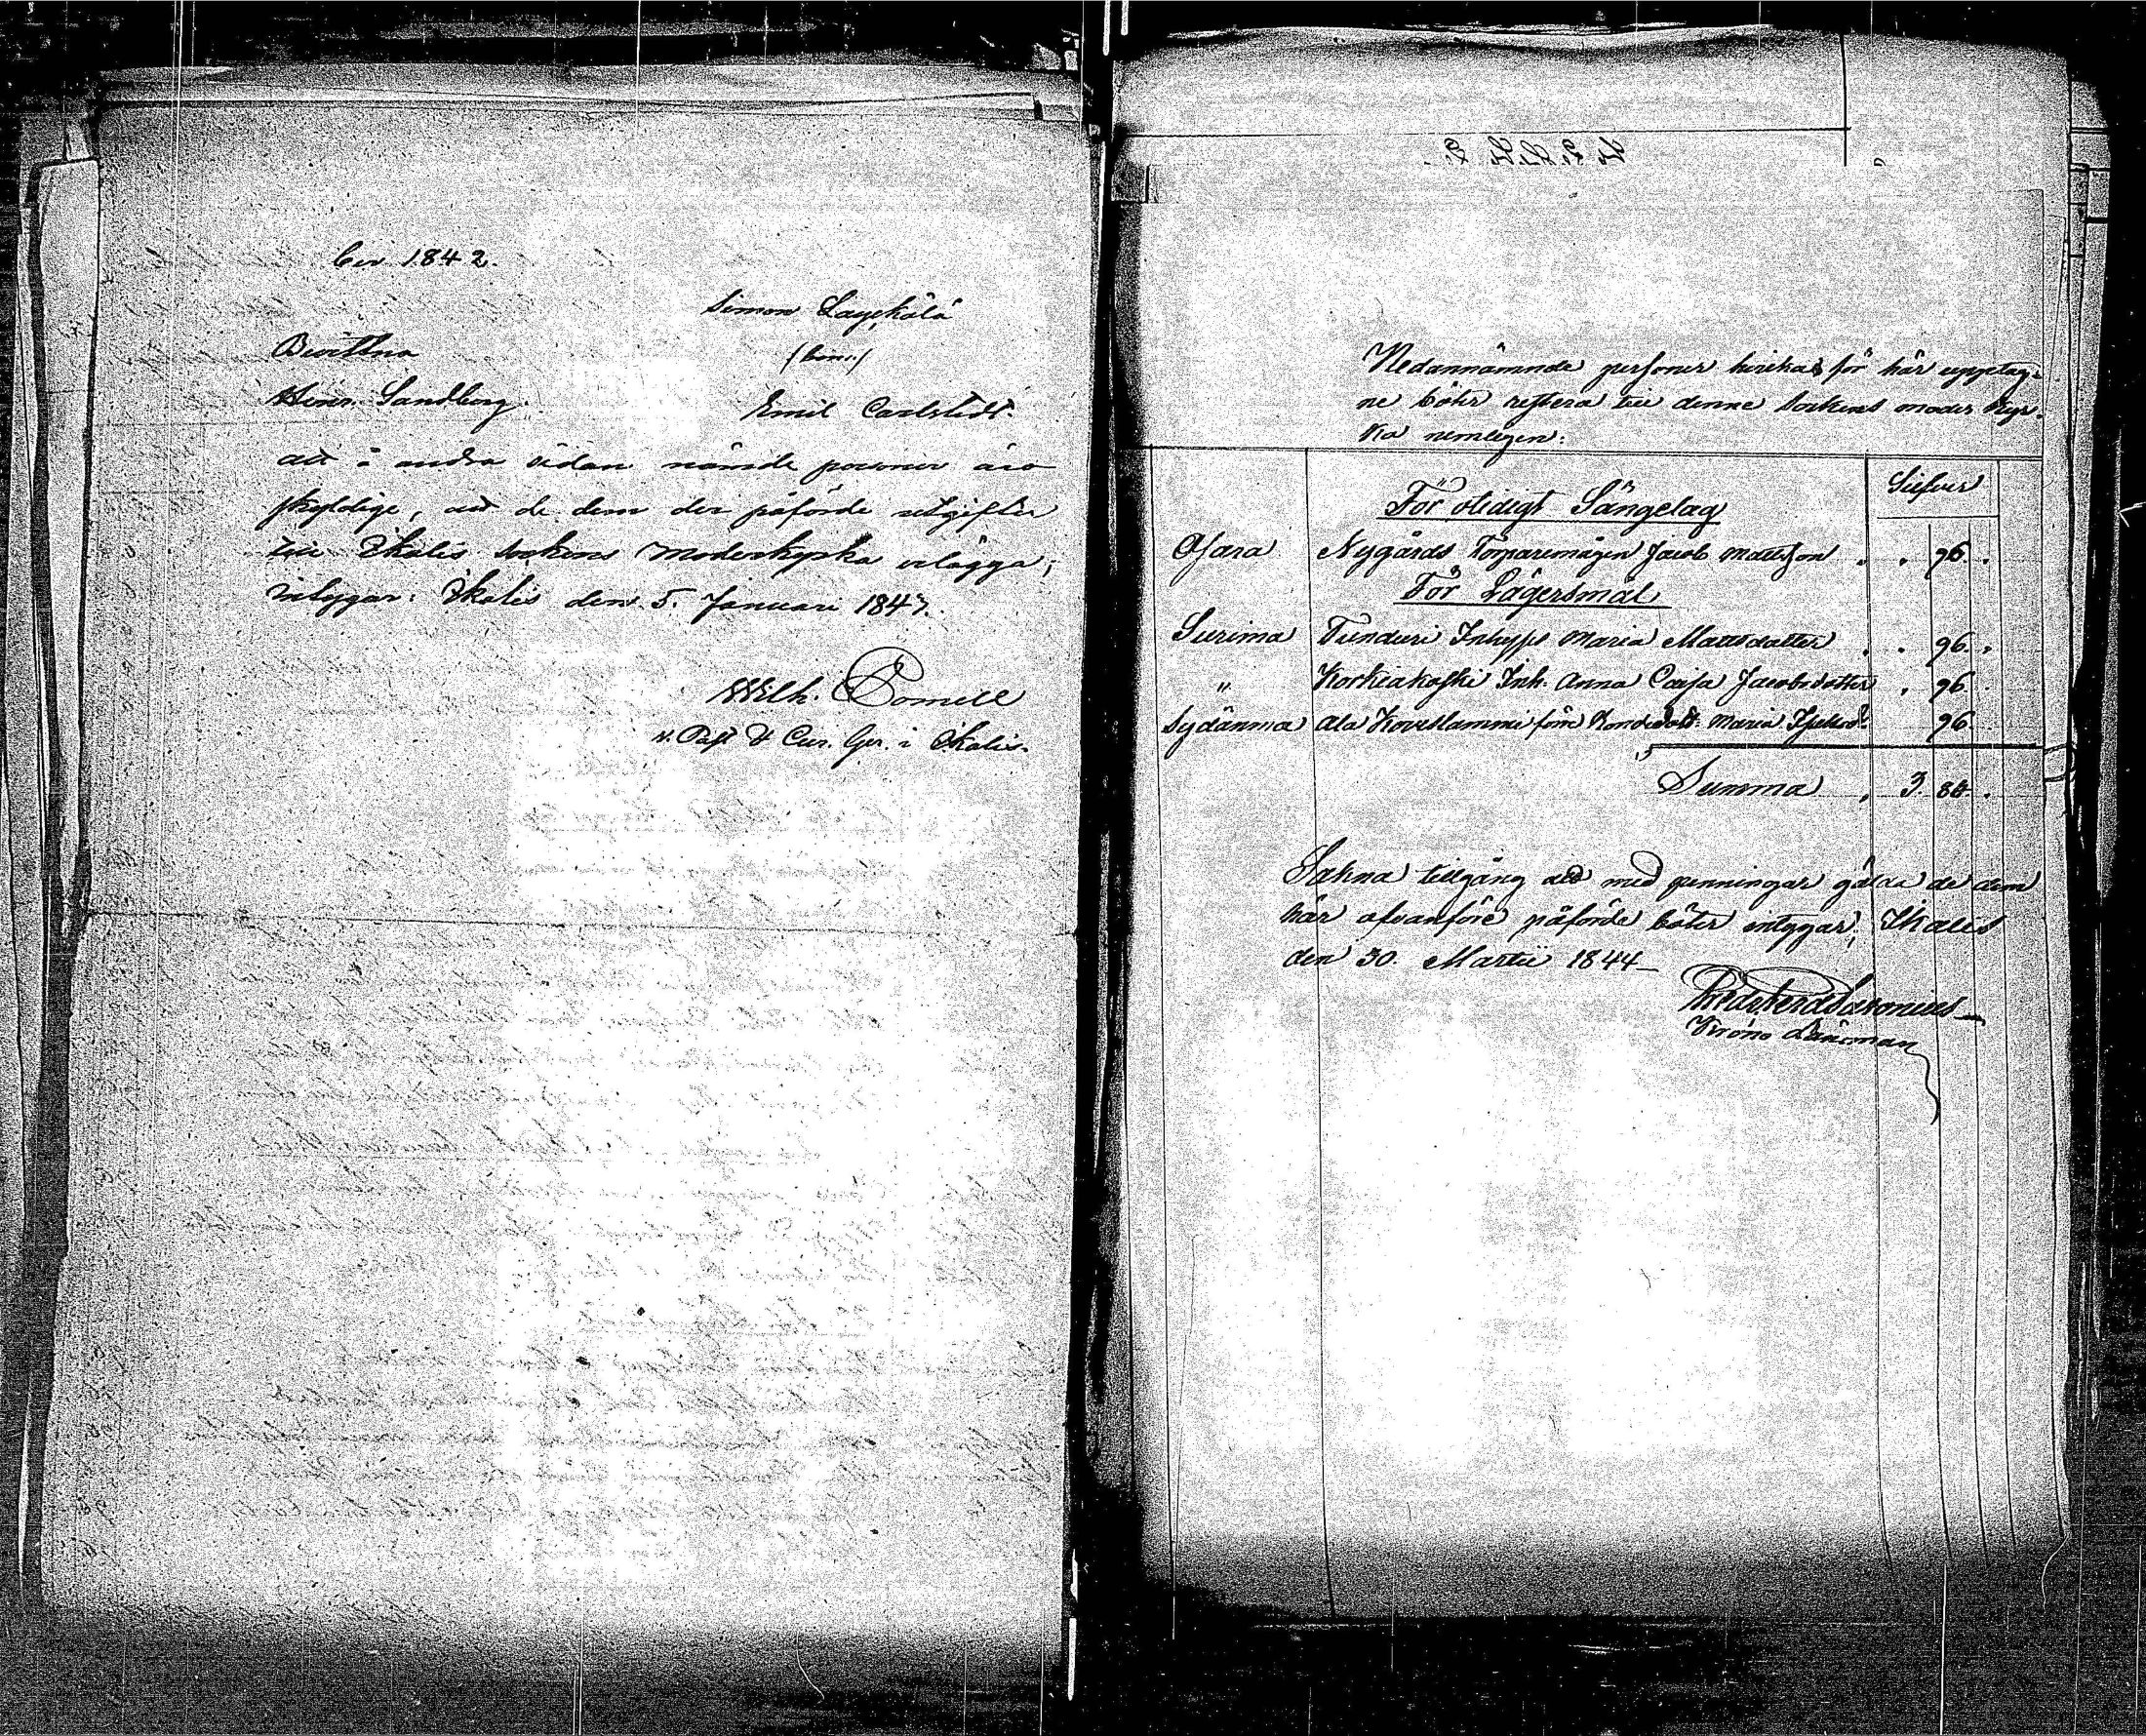 ber 1842.
Simon Layckälä
Bevittna
Henr. Sandberg.
Emil Carlstedt.
att å andra sidan nämde personer äro
skyldige, att de dem der påförde utgifter
till Ikalis Sockens Moderkyrka erlägga,
intygar. Ikalis den 5. Januari 1843.
Wilh. Pomell
v. Past & Cur. Ger. i Ikalis.
Nedannämnde personer hvilka för här upptag-
ne böter restera till denne Sockens moder Kyr-
ka nemligen:
Silfver
För otidigt Sängelag
Osara Nygårds Torparemågen Jacob Mattsson 96.
För Lägersmål
Surima Tunduri Inhyses Maria Mattsdotter 96.
" Korkiakoski Inh. Anna Caisa Jacobsdotter 96.
Sydänma Ala Kovelammi Maria 96.
Summa 3. 84.
Sakna tillgång att med penningar gälda de dem
här ofvanföre påförde böter intygar; Ikalis
den 30. Martii 1844
Krono Länsman